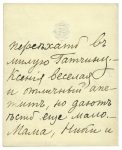 переѣхать въ
милую Гатчину.
Ксенія веселая
и отличный апе-
титъ, но даютъ
ѣсть еще мало.
Мама, Ники и